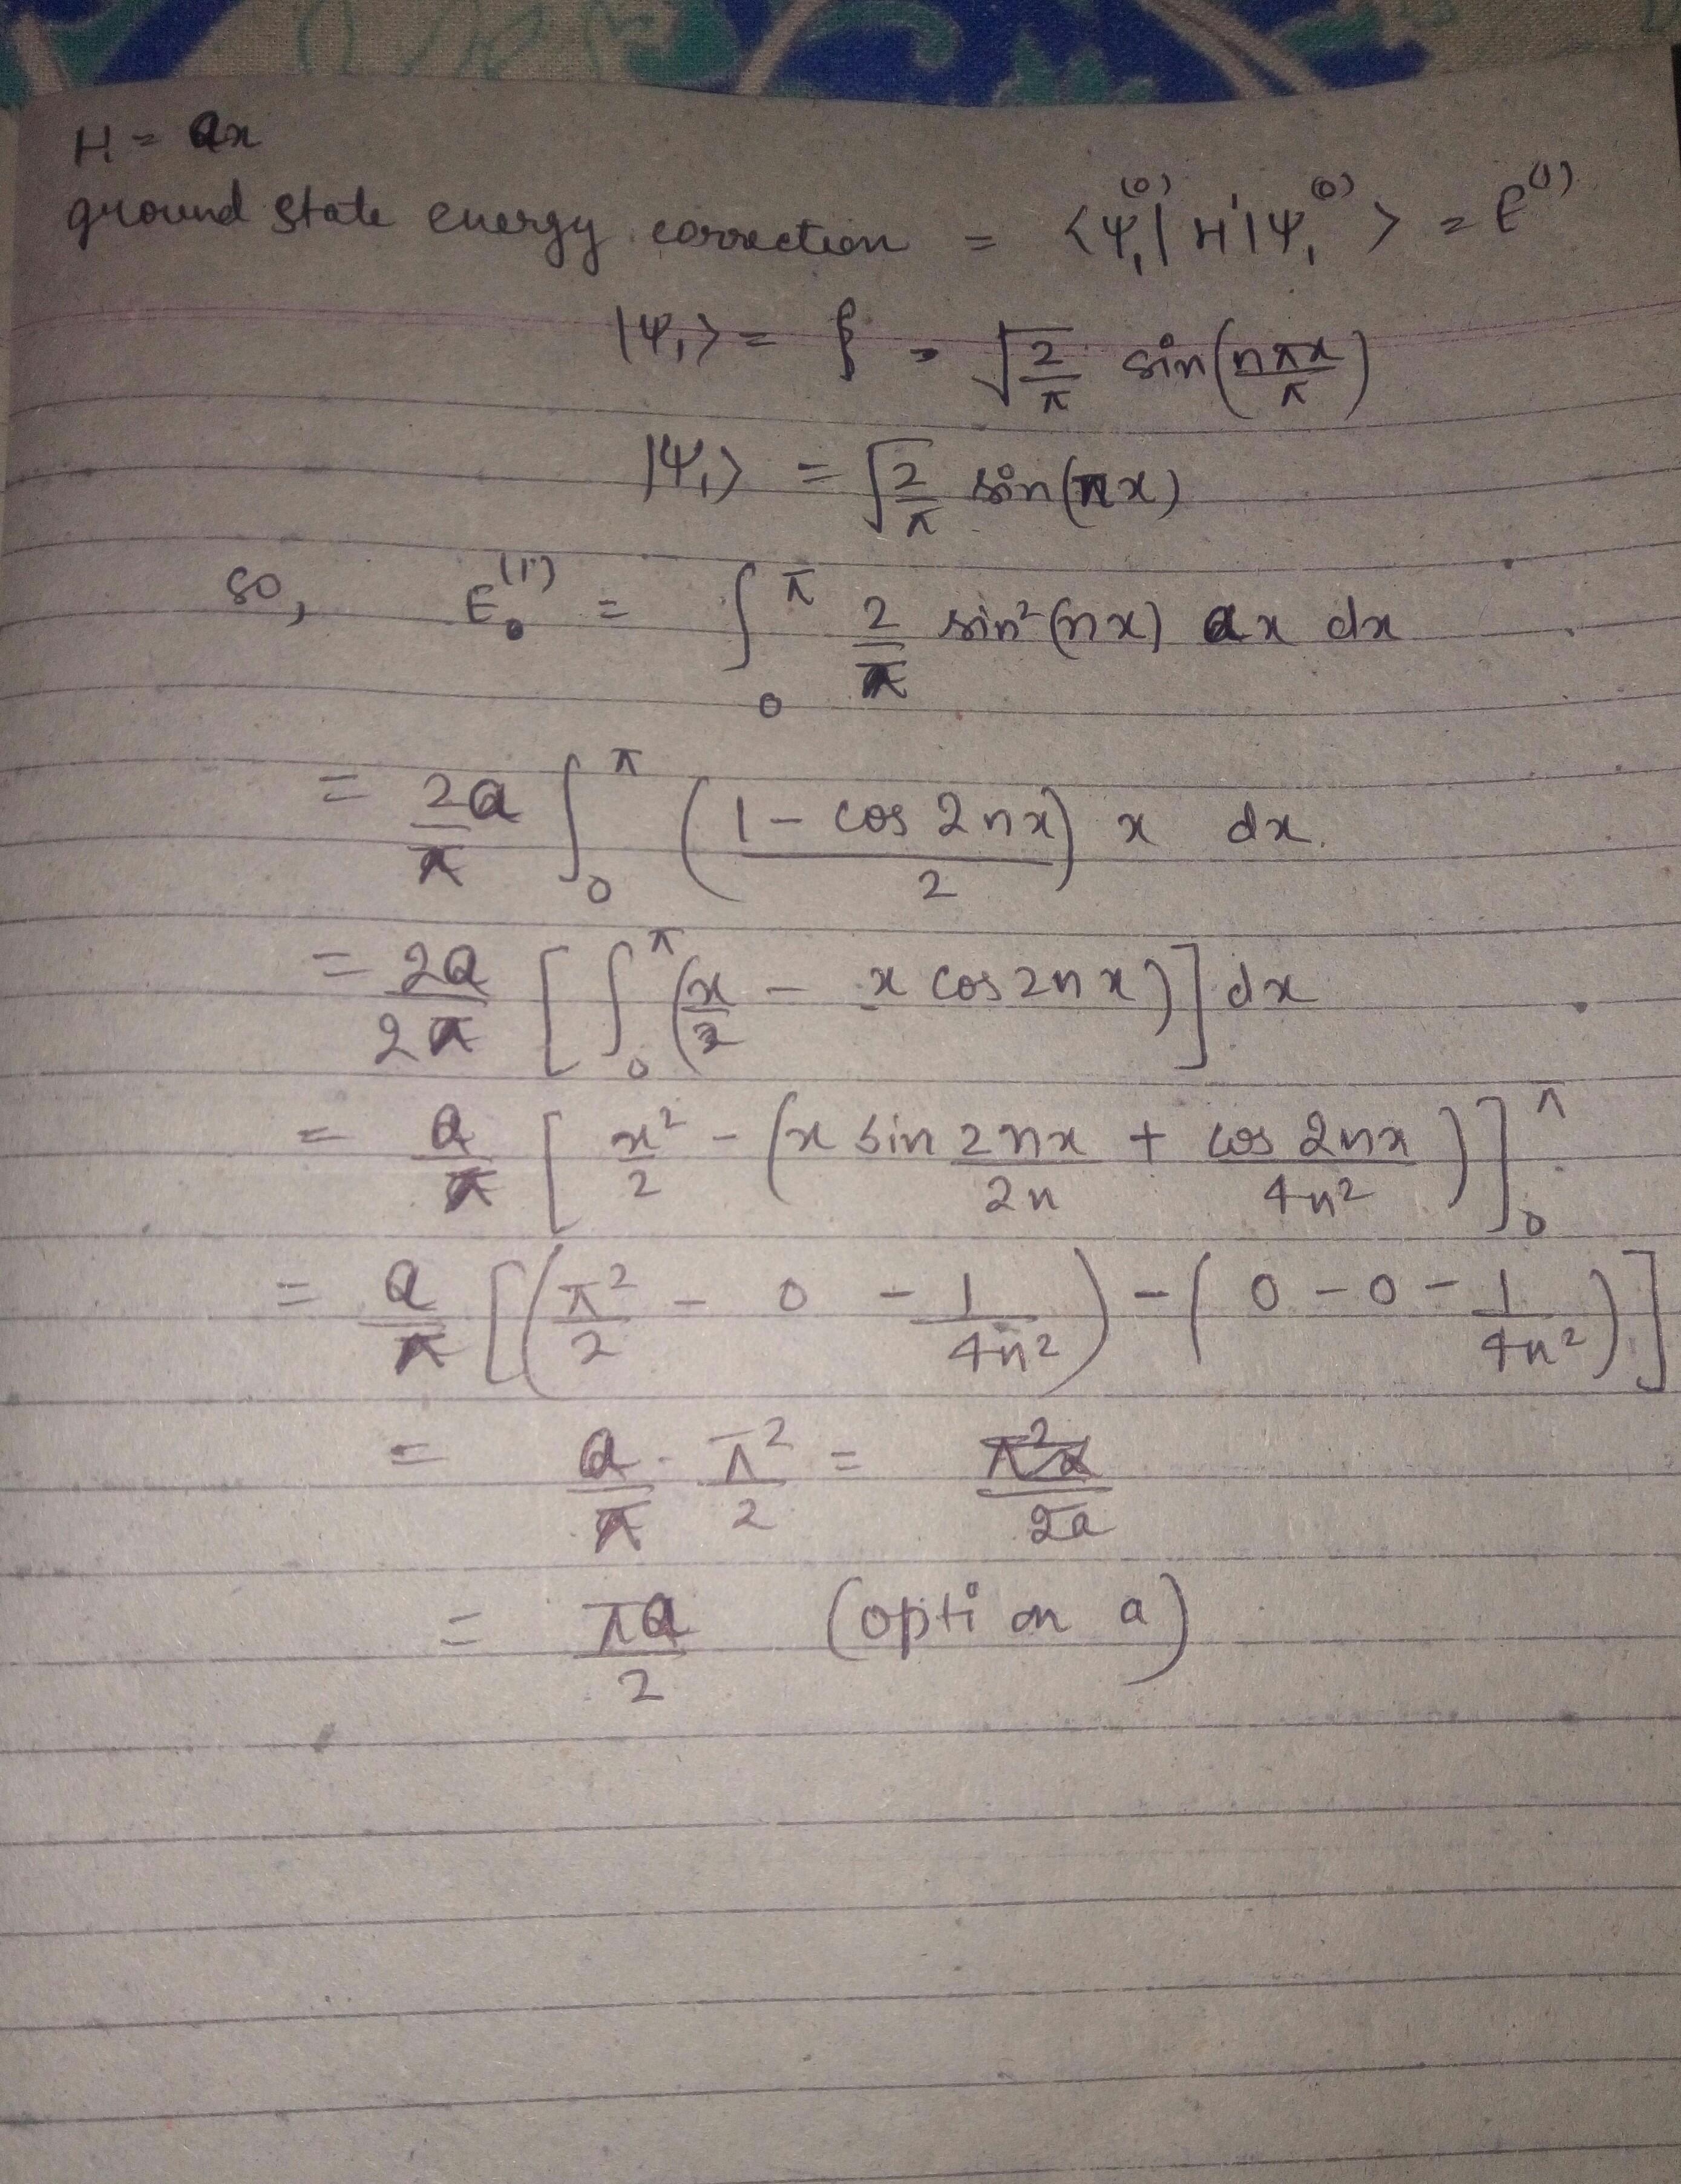 H = ax
ground state energy correction = <ψ₁⁽⁰⁾| H' |ψ₁⁽⁰⁾> = E⁽¹⁾
|ψ₁> = = √(2/π) sin(nπx/π)
|ψ₁> = √(2/π) sin(nx)
so, E₀⁽¹⁾ = ∫₀^π 2/π sin²(nx) ax dx
= 2a/π ∫₀^π ((1 - cos 2nx)/2) x dx.
= 2a/2π [∫₀^π (x/2 - x cos 2nx)] dx
= a/π [x²/2 - (x sin 2nx/2n + cos 2nx/4n²)]₀^π
= a/π [(π²/2 - 0 - 1/4n²) - (0 - 0 - 1/4n²)]
= a/π · π²/2 = π²a/2a
= πa/2 (option a)